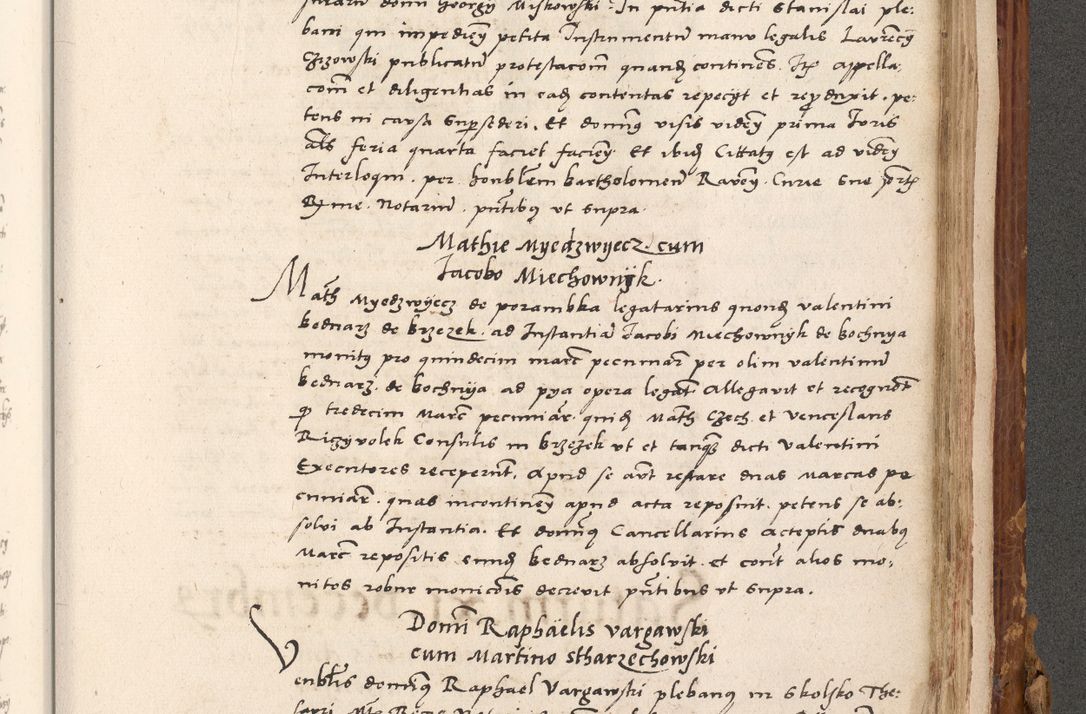 finarum domi Georgy Miskowski. In pntia dicti Stanislai ple:
bani qui impedien petita Instrumentum manu legalis Laurecy
Czizowski publicatum protestacom quand continens. Itp Appella:
com et diligentias in eadz contentas repecyt et reproduxit. pe:
tens ni causa supersederi. Et domnq visis videndz prima Iuris
als feria quarta faciet faciendz Et ibidz Cittatq est ad videndz
Interloqui. per honblem Bartholomeum Raven. Curie Sue
Byne. Notarium. pntibq vt supra.
Mathie Myedzwyecz cum
Iacobo Miechownyk.
Math Myedzwyecz de porambka legatarius quondz valentini
bednarz de brzezek. ad Instantia Iacobi Miechownyk de bochnya
monitq pro quindecim marc pecuniar per olim valentinum
bednarz de bochnya ad pya opera legat Allegavit et recognovit
qz tredecim Marc pecuniar. quidz Math Czech et Venceslaus
Riczyvolek Consules in brzezek vt et tanqz dicti Valentini
Executores receperunt, Apud se aut restare duas Marcas pe
cuniar. quas incontinen apud acta reposuit. petens se ab:
solvi ab Instantia. Et domnq Cancellarius Acceptis duabq
Marc repositis eundz bednarz absolvit et cont alios mo:
nitos robur monicois decrevit pntibus vt supra.
Domi Raphaëlis Vargawski
cum Martino Stharzechowski
Venblis domnq Raphael Vargawski plebanq in Skolsko The: